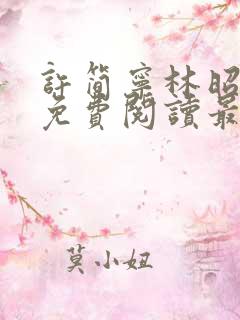 許簡寧林昭
免費閱讀最
莫小妞